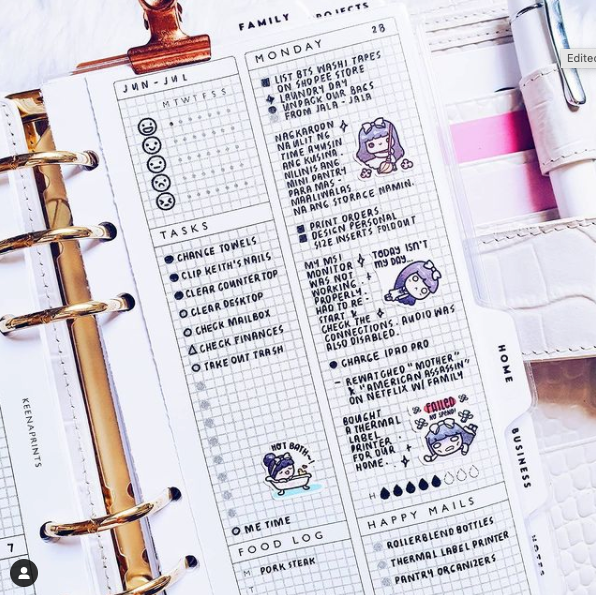 FAMILY
PROJECTS
Edited
JUN-JUL
M T W T F S S
TASKS
CHANGE TOWELS
CLIP KEITH'S NAILS
CLEAR COUNTERTOP
CLEAR DESKTOP
CHECK MAILBOX
CHECK FINANCES
TAKE OUT TRASH
HOT BATH~
ME TIME
FOOD LOG
M PORK STEAK
T
MONDAY 28
LIST BTS WASHI TAPES
ON SHOPEE STORE
LAUNDRY DAY
UNPACK OUR BAGS
FROM JALA-JALA
NAGKAROON
NA ULIT NG
TIME AYUSIN
ANG KUSINA
NILINIS ANG
MINI PANTRY
PARA MAS
MAALIWALAS
NA ANG STORAGE NAMIN.
PRINT ORDERS
DESIGN PERSONAL
SIZE INSERTS FOLDOUT
MY MSI
MONITOR
WAS NOT
WORKING
PROPERLY.
HAD TO RE-
START &
CHECK THE
CONNECTIONS. AUDIO WAS
ALSO DISABLED.
TODAY ISN'T
MY DAY...
CHARGE IPAD PRO
- REWATCHED "MOTHER"
& "AMERICAN ASSASSIN"
ON NETFLIX W/ FAMILY
BOUGHT
A THERMAL
LABEL
PRINTER
FOR OUR
HOME.
FAILED
NO SPEND!
H
HAPPY MAILS
ROLLERBLEND BOTTLES
THERMAL LABEL PRINTER
PANTRY ORGANIZERS
HOME
BUSINESS
NOTES
KEENAPRINTS
7